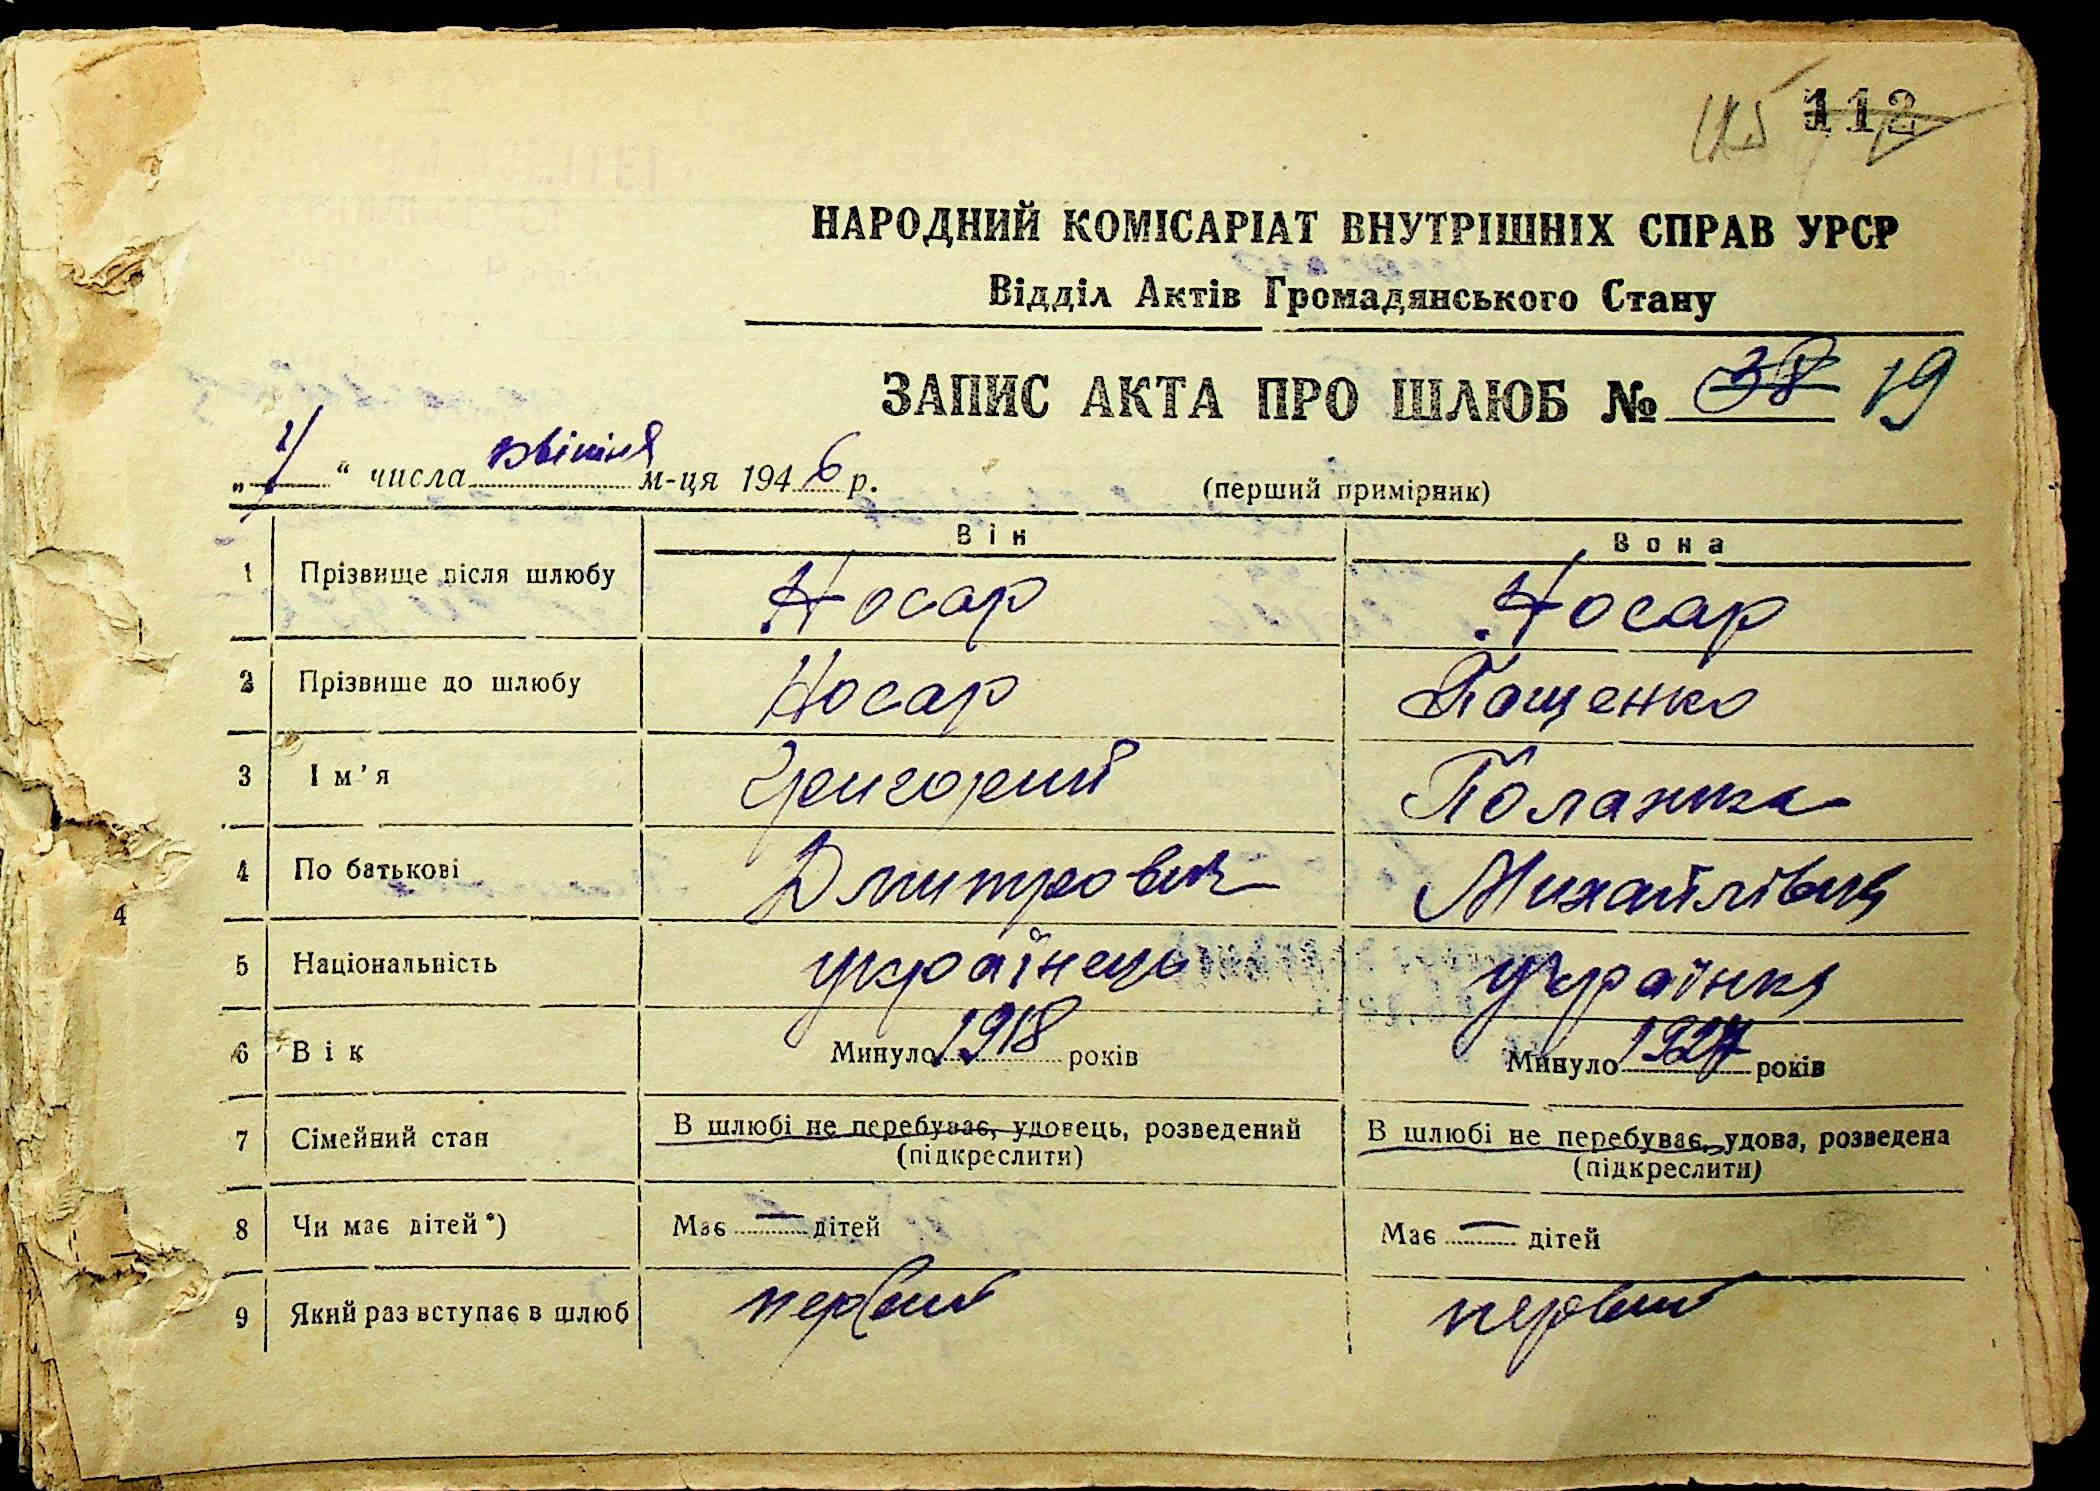 115 112
НАРОДНИЙ КОМІСАРІАТ ВНУТРІШНІХ СПРАВ УРСР
Відділ Актів Громадянського Стану
ЗАПИС АКТА ПРО ШЛЮБ № 38 19
„ “ числа квітня м-ця 1946 р. (перший примірник)
Він Вона
1 Прізвище після шлюбу Носар Носар
2 Прізвише до шлюбу Носар Пащенко
3 Ім’я Григорий Полажка
4 По батькові Дмитрович Михайлівна
4
5 Національність українець українка
6 Вік Минуло 1918 років Минуло 1927 років
7 Сімейний стан В шлюбі не перебуває, удовець, розведений В шлюбі не перебуває, удова, розведена
(підкреслити) (підкреслити)
8 Чи має дітей*) Має — дітей Має — дітей
9 Який раз вступає в шлюб первий первий